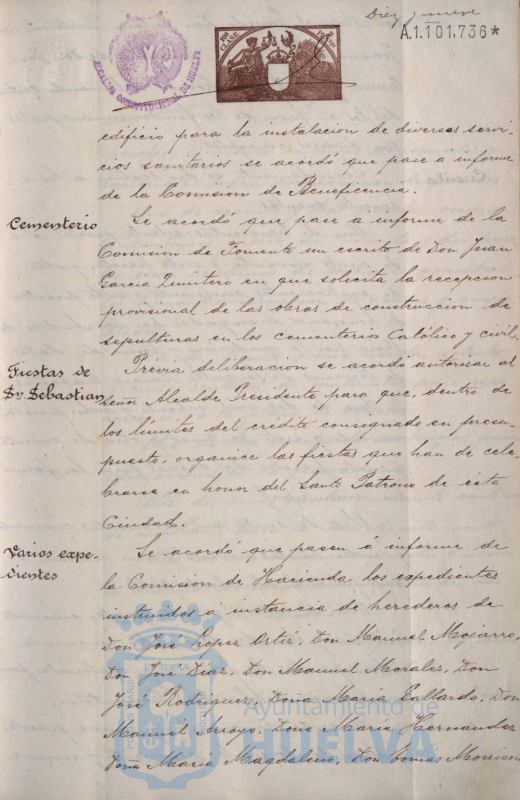 Diez y nueve
A.1.101.736*
ALCALDIA CONSTITUCIONAL DE HUELVA
CLASE
PESETAS
edificio para la instalacion de diversos servi-
cios sanitarios se acordó que pase a informe
de la Comision de Beneficencia.
Cementerio
Se acordó que pase a informe de la
Comision de Fomento un escrito de Don Juan
Garcia Quintero en que solicita la recepcion
provisional de las obras de construccion de
sepulturas en los cementerios Católico y civil.
Fiestas de
Sn. Sebastian
Prévia deliberacion se acordó autorizar al
señor Alcalde Presidente para que, dentro de
los límites del crédito consignado en presu-
puesto, organice las fiestas que han de cele-
brarse en honor del Santo Patrono de esta
Ciudad.
Varios expe-
dientes
Se acordó que pasen á informe de
la Comision de Hacienda los expedientes
instruidos a instancia de herederos de
Don José Lopez Ortiz, Don Manuel Mojarro,
Don José Diaz, Don Manuel Morales, Don
José Rodriguez, Doña Maria Gallardo, Don
Manuel Arroyo, Doña Maria Hernandez
Doña Maria Magdaleno, Don Tomas
Ayuntamiento de
HUELVA